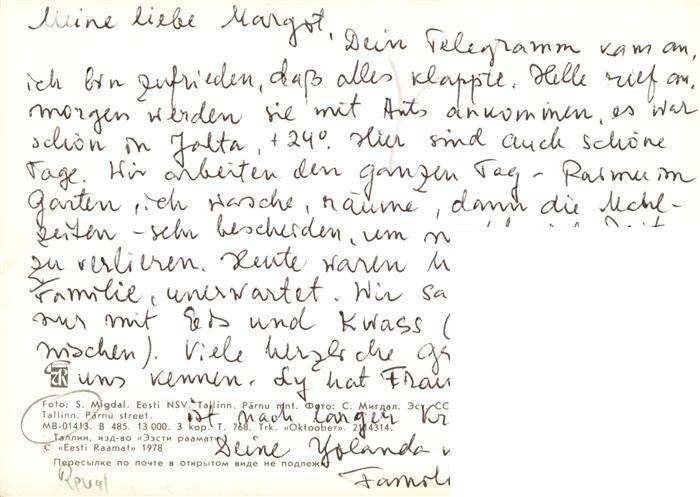 Meine liebe Margot,
Dein Telegramm kam an,
ich bin zufrieden, daß alles klappte. Helle rief an,
morgen werden sie mit Ants ankommen, es war
schön in Jalta, +24°. Hier sind auch schöne
Tage. Wir arbeiten den ganzen Tag – Rasmus im
Garten, ich wasche, räume, dann die Mahl-
zeiten – sehr bescheiden, um
zu verlieren. Heute waren
Familie, unerwartet. Wir
nur mit Eis und Kwass (
mischen). Viele herzliche
uns kennen. Ly hat
Foto: S. Migdal. Eesti NSV. Tallinn. Pärnu mnt. Фото: С. Мигдал. Эст. СС
Tallinn. Pärnu street.
ist nach langer
MB-01413. B 485. 13 000. 3 kop. T. 768. Trk. «Oktoober». 2114314.
Таллин, изд-во «Ээсти раамат»
© «Eesti Raamat» 1978
Deine Yolanda
Пересылке по почте в открытом виде не подлежит
Reval